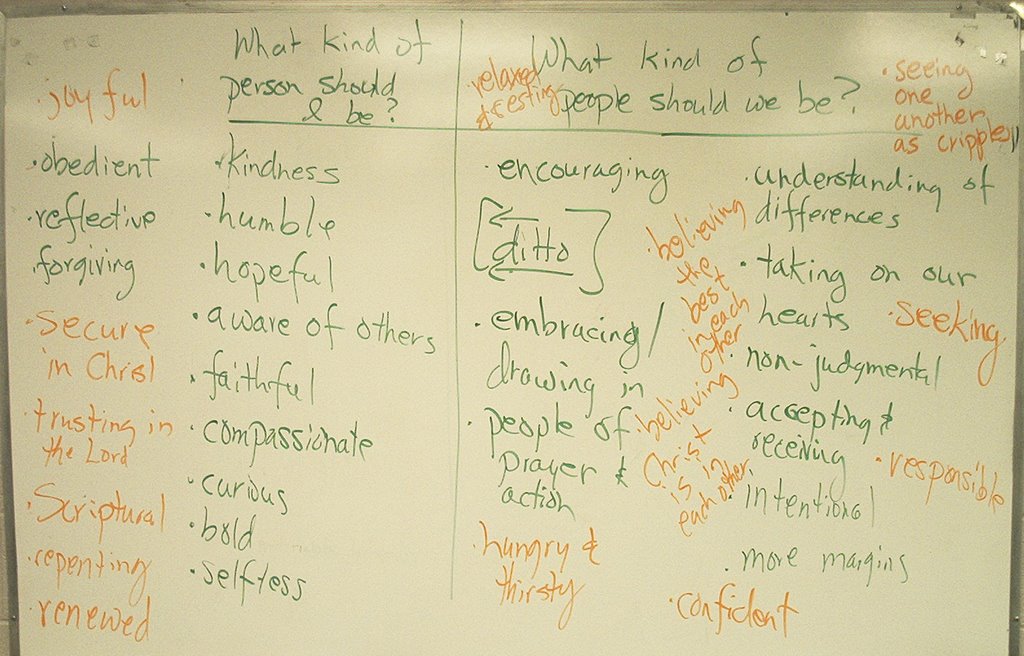 What kind of
person should
I be?
· joyful
· obedient
· reflective
· forgiving
· secure
in Christ
· trusting in
the Lord
· Scriptural
· repenting
· renewed
· kindness
· humble
· hopeful
· aware of others
· faithful
· compassionate
· curious
· bold
· selfless
What kind of
people should we be?
relaxed
& resting
· encouraging
[ditto]
· embracing/
drawing in
· people of
prayer &
action
· hungry &
thirsty
· believing
the
best
in each
other
· believing
Christ
is in
each other.
· seeing
one
another
as cripples
· understanding of
differences
· taking on our
hearts
· seeking
· non-judgmental
· accepting &
receiving
· responsible
· intentional
· more margins
· confident